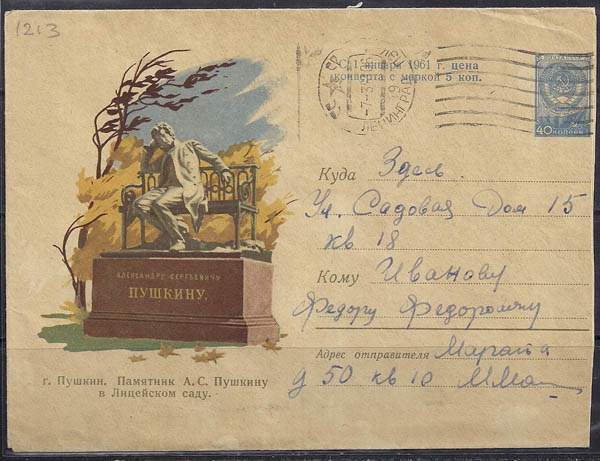 1213
С 1 января 1961 г. цена
конверта с маркой 5 коп.
ЛЕНИНГРАД
40 КОПЕЕК
Куда Здесь
Ул. Садовая Дом 15
кв 18
Кому Иванову
Федору Федоровичу
Адрес отправителя Марата
д 50 кв 10
АЛЕКСАНДРУ СЕРГЕЕВИЧУ
ПУШКИНУ.
г. Пушкин. Памятник А. С. Пушкину
в Лицейском саду.